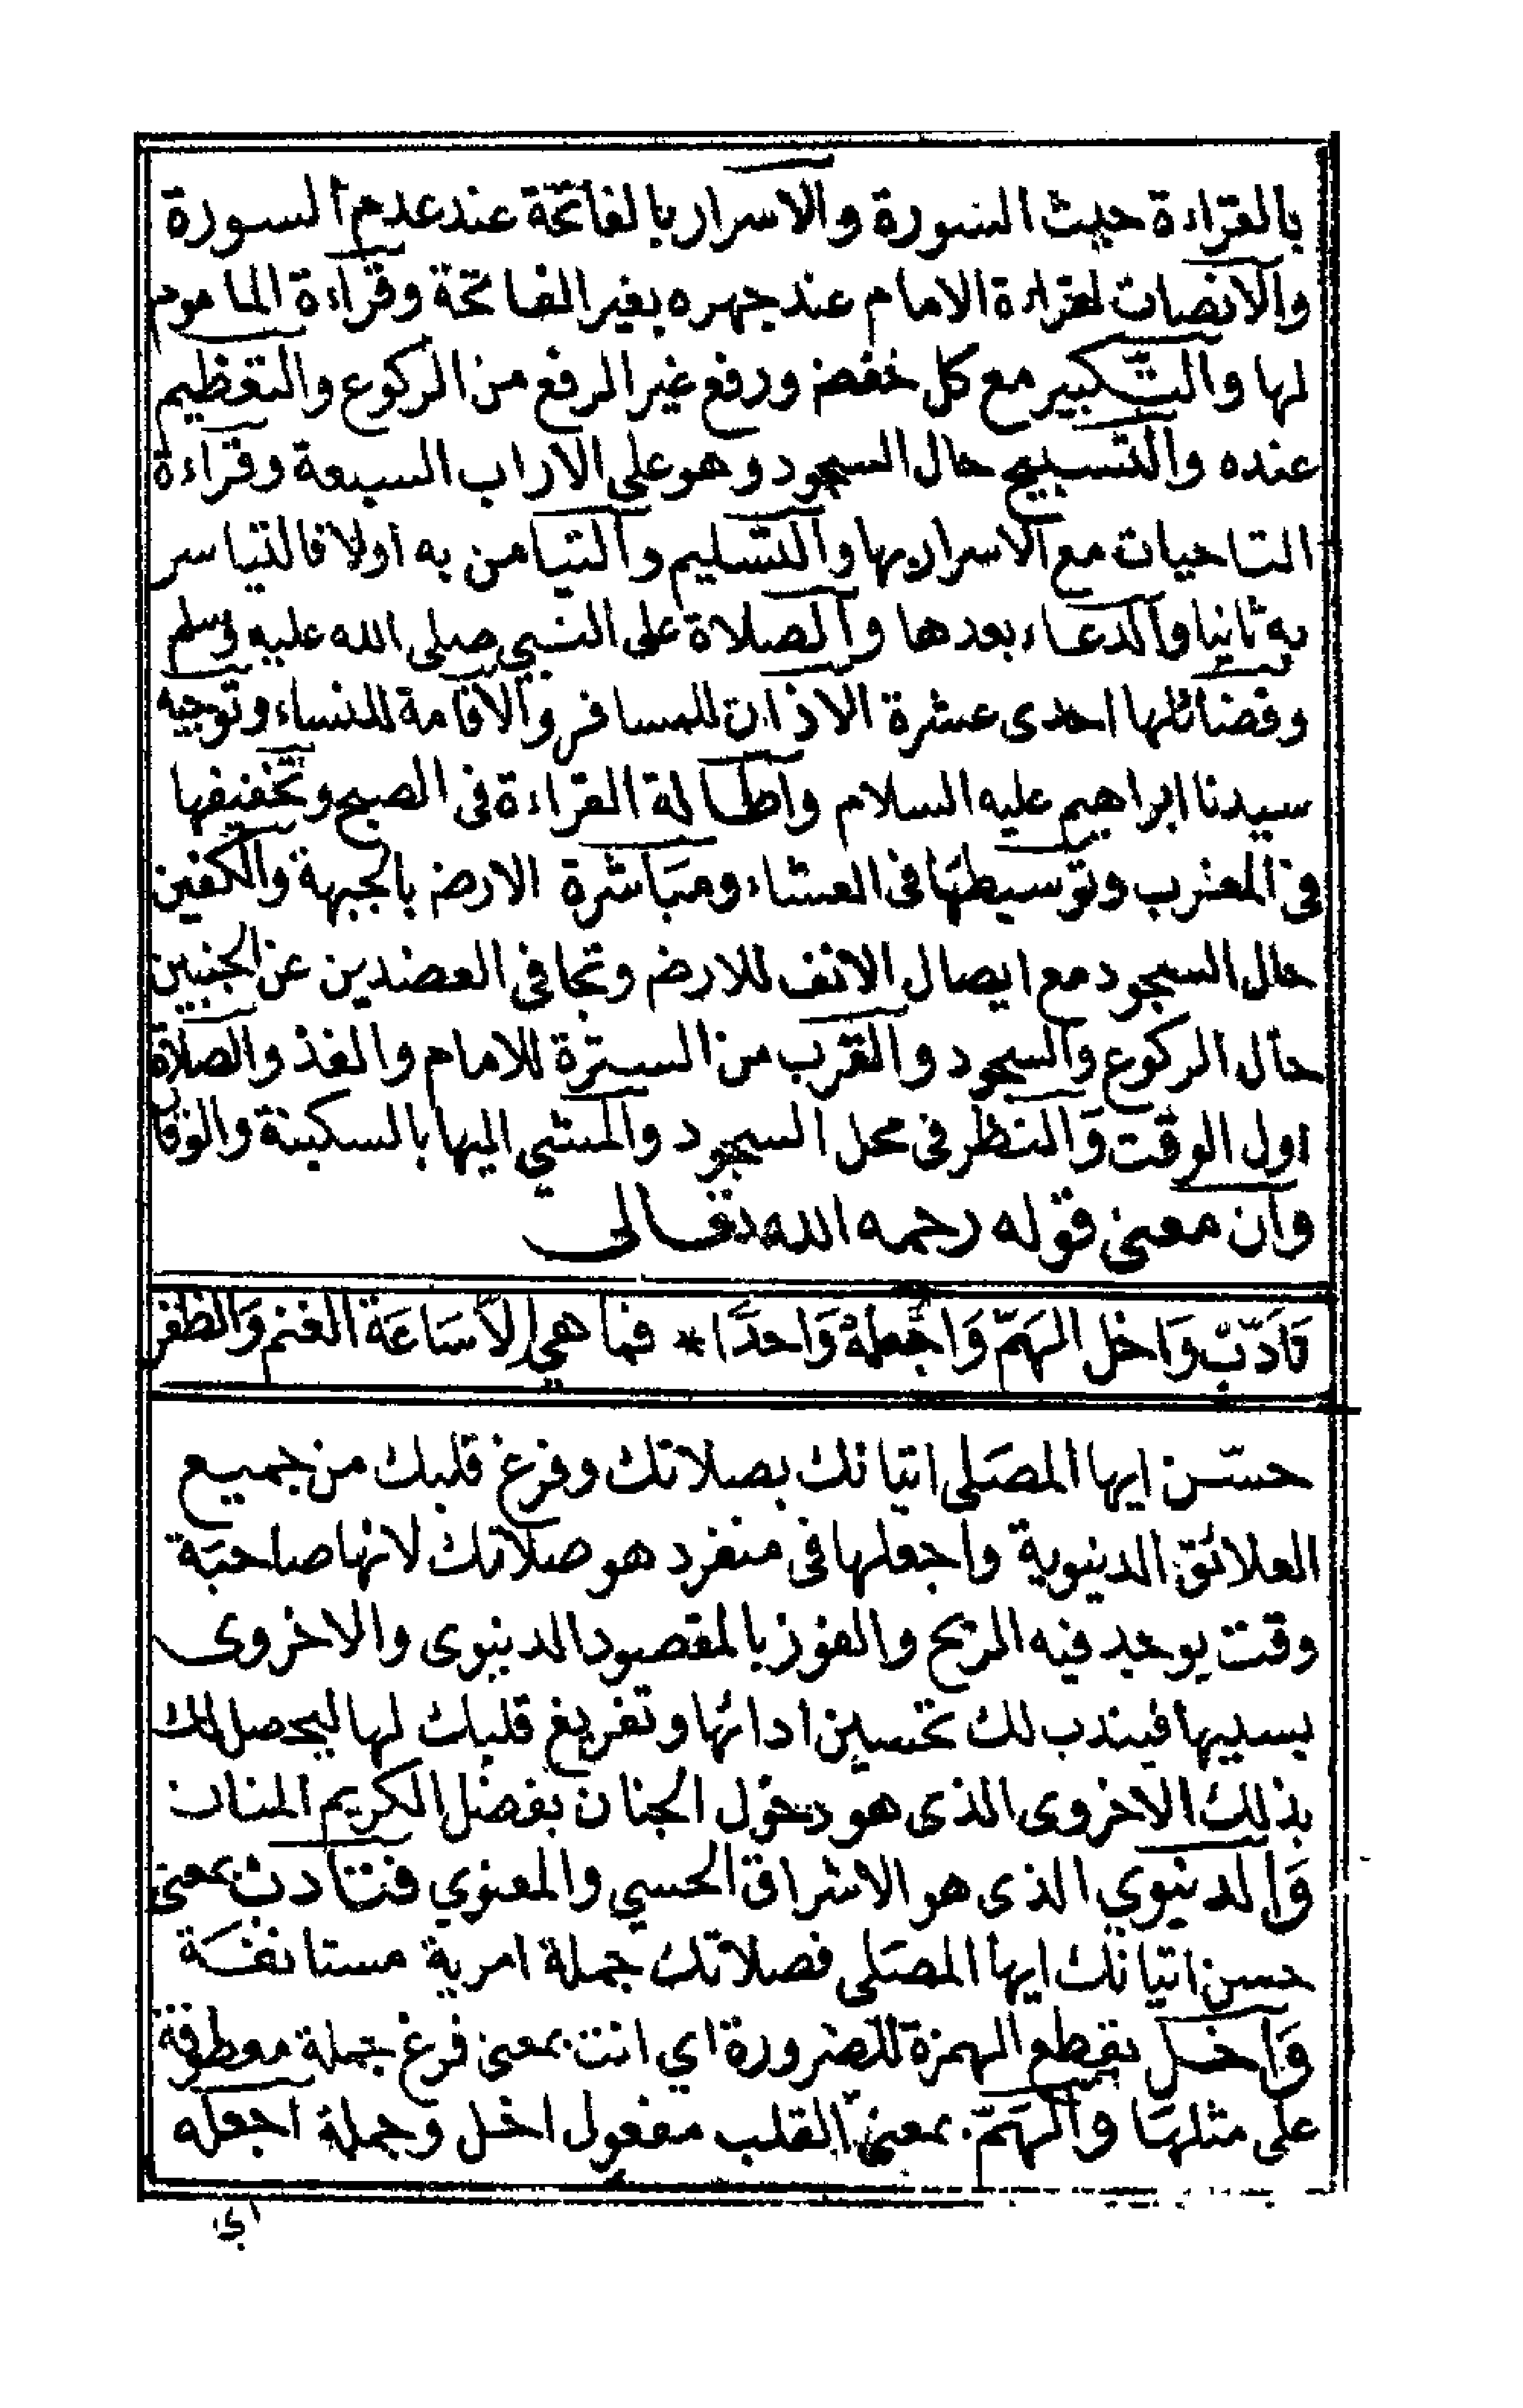 بالقراءة حيث السورة والاسرار بالفاتحة عند عدم السورة
والانصات لقراءة الامام عند جهره بغير الفاتحة وقراءة الماموم
لها والتكبير مع كل خفض ورفع غير الرفع من الركوع والتعظيم
عنده والتسبيح حال السجود وهو على الاراب السبعة وقراءة
التاحيات مع الاسرار بها والتسليم والتيامن به اولا فالتياسر
به ثانيا والدعاء بعدها والصلاة على النبي صلى الله عليه وسلم
وفضائلها احدى عشرة الاذان للمسافر والاقامة للنساء وتوجيه
سيدنا ابراهيم عليه السلام واطالة القراءة فى الصبح وتخفيفها
فى المغرب وتوسيطها فى العشاء ومباشرة الارض بالجبهة والكفين
حال السجود مع ايصال الانف للارض وتجافى العضدين عن الجنبين
حال الركوع والسجود والقرب من السترة للامام والفذ والصلاة
اول الوقت والنظر فى محل السجود والمشي اليها بالسكينة والوقار
وان معنى قوله رحمه الله تعالى
تَاَدّبْ وَاخل الهَمّ وَاجْعلهُ وَاحدًا * فما هي الاّ سَاعَة الغنم وَالظفر
حسّن ايها المصَلى اتيانك بصلاتك وفرغ قلبك من جميع
العلائق الدينوية واجعلها فى منفرد هو صلاتك لانها صاحبَة
وقت يوجد فيه الربح والفوز بالمقصود الدينوى والاخروى
بسببها فيندب لك تحسين ادائها وتفريغ قلبك لها ليحصل لك
بذلك الاخروى الذى هو دخول الجنان بفضل الكريم المنان
وَالدنيوي الذى هو الاشراق الحسي والمعنوي فتادب بمعنى
حسن اتيانك ايها المصَلى فصلاتك جملة امرية مستانفَة
وَاخل بقطع الهمزة للضرورة اي انت بمعنى فرغ جملة معطوفة
على مثلهَا والهَمّ بمعنى القلب مفعول اخل وجملة اجعله
اي